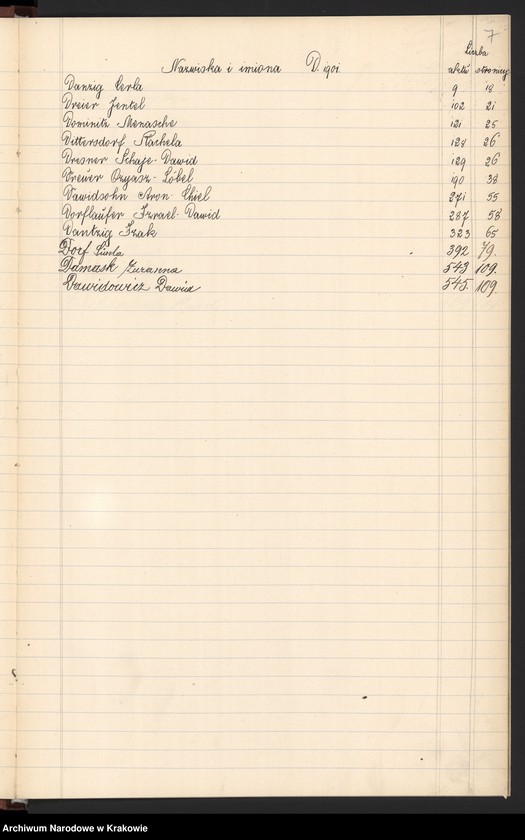 7
Liczba
Nazwiska i imiona D. 1901. aktu stronicy
Danzig Perla 9 18
Dreier Jentel 102 21
Dominitz Menasche 121 25
Dittersdorf Rachela 128 26
Dresner Schaje-Dawid 129 26
Dreuer Ozyasz-Löbel 190 38
Dawidsohn Aron-Chiel 271 55
Dorflaufer Izrael-Dawid 287 58
Dantzig Izak 323 65
Dorf 392 79.
Damask Zuzanna 543 109.
Dawidowicz Dawid 545. 109.
Archiwum Narodowe w Krakowie